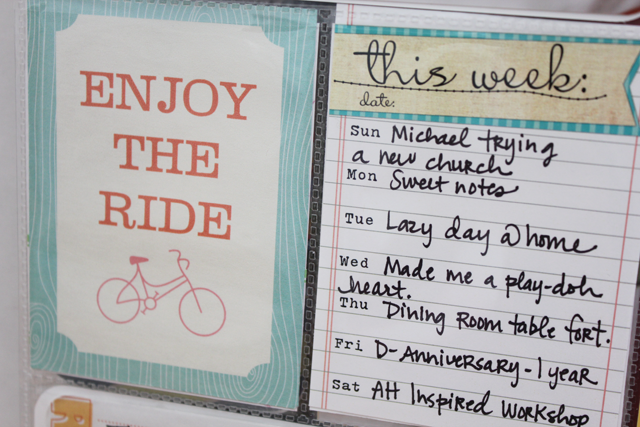 ENJOY
THE
RIDE
this week:
date:
Sun Michael trying
a new church
Mon Sweet notes
Tue Lazy day @ home
Wed Made me a play-doh
heart.
Thu Dining Room table fort.
Fri D-Anniversary - 1 year
Sat AH Inspired Workshop